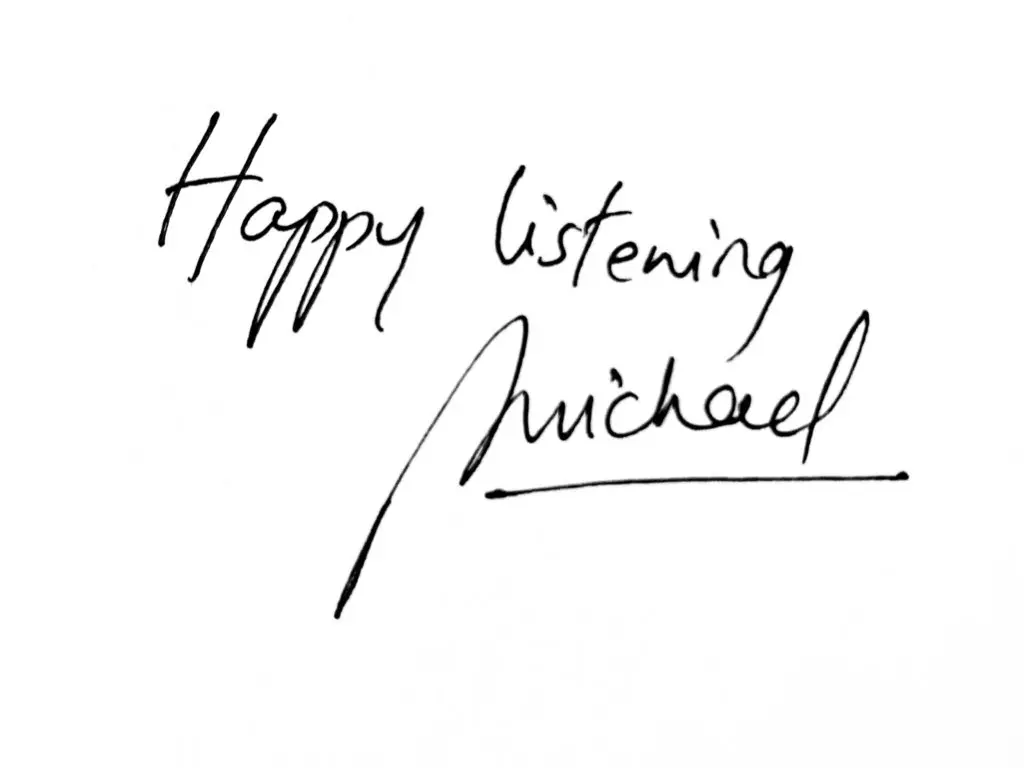 Happy listening
Michael